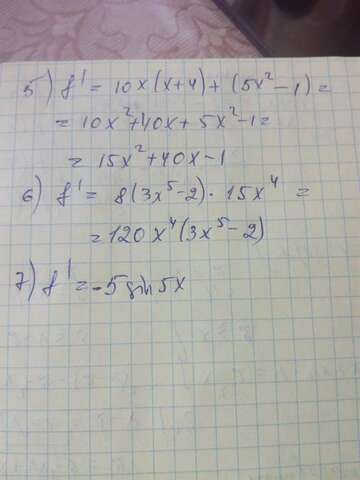 5) f' = 10x(x+4) + (5x²-1) =
= 10x²+40x+5x²-1=
= 15x²+40x-1
6) f' = 8(3x⁵-2)·15x⁴ =
= 120x⁴(3x⁵-2)
7) f' = -5 sin 5x